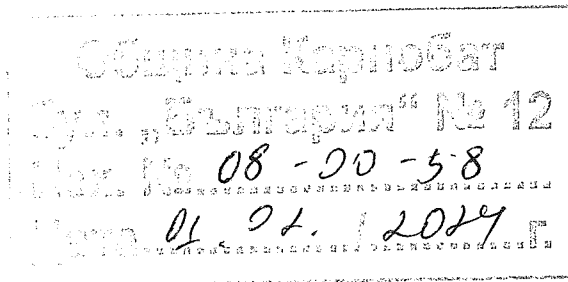 Община Карнобат
бул. „България“ № 12
Изх. № 08-00-58
Дата 01.02. / 2024 г.